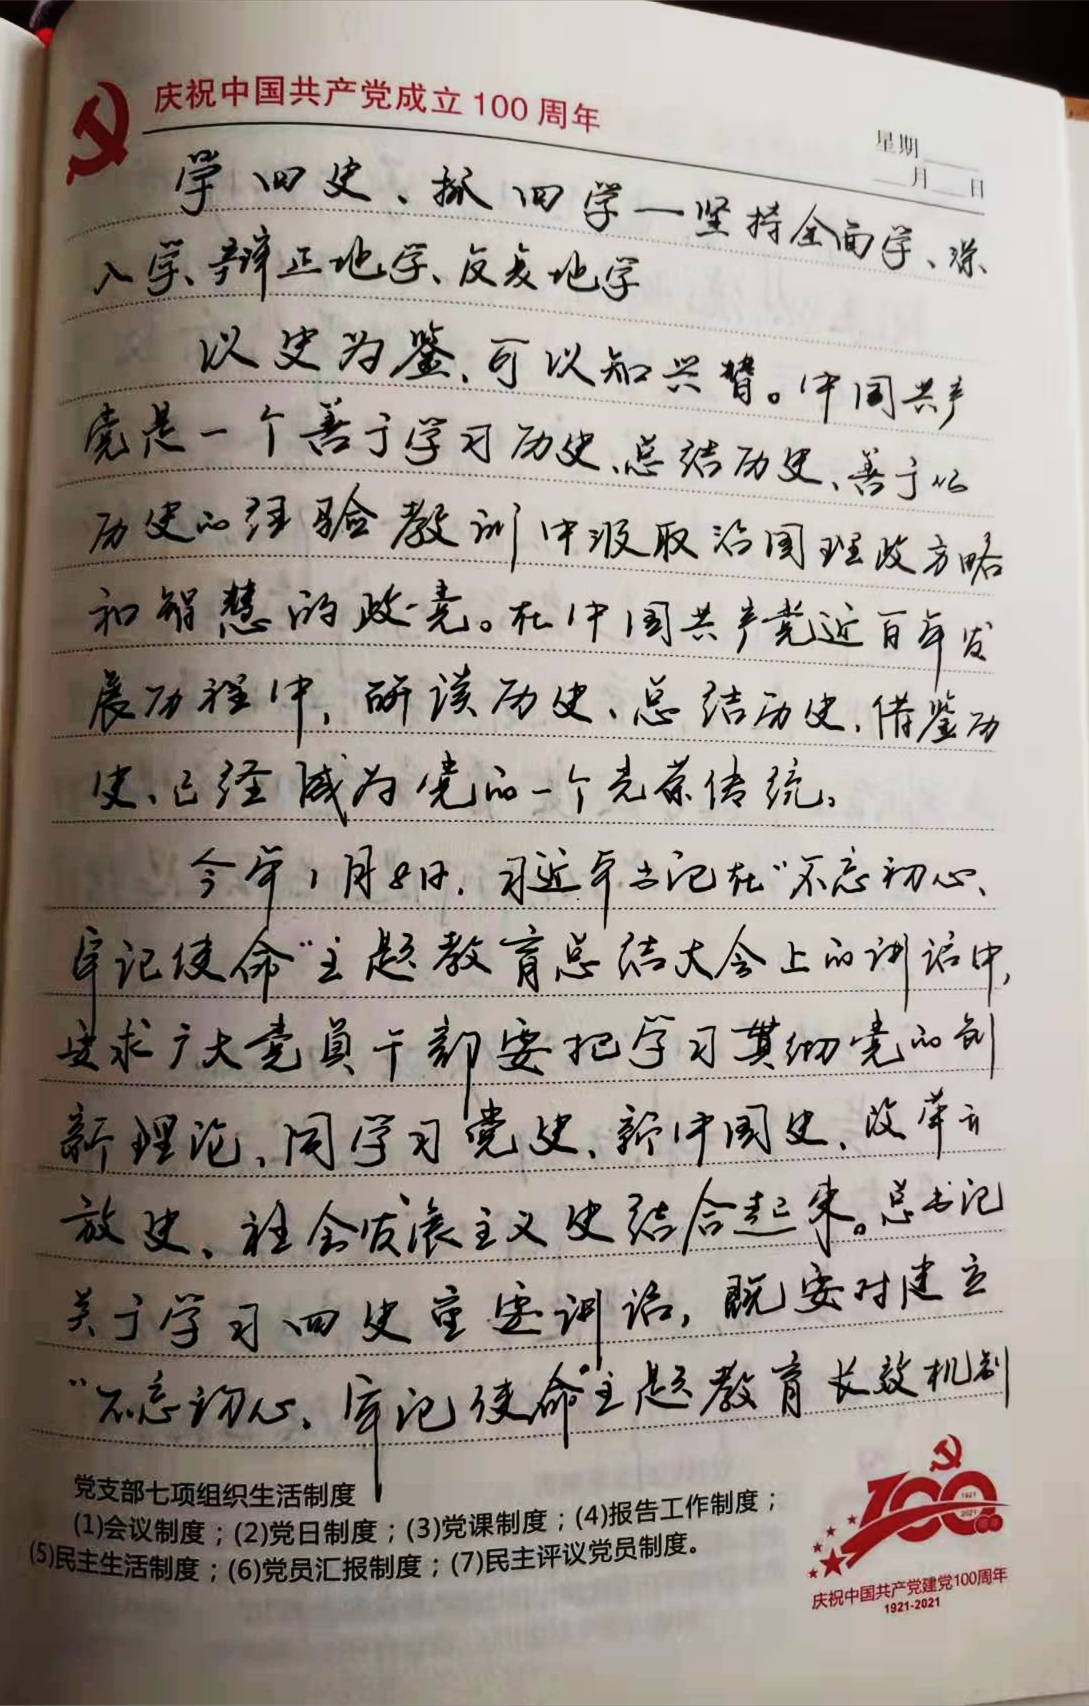 庆祝中国共产党成立100周年
星期
月 日
学四史、抓四学一坚持全面学、深
入学、辩正地学、反复地学
以史为鉴、可以知兴替。中国共产
党是一个善于学习历史、总结历史、善于从
历史的经验教训中汲取治国理政方略
和智慧的政党。在中国共产党近百年发
展历程中，研读历史、总结历史、借鉴历
史、已经成为党的一个光荣传统。
今年1月8日，习近平书记在“不忘初心、
牢记使命”主题教育总结大会上的讲话中，
要求广大党员干部要把学习贯彻党的创
新理论、同学习党史、新中国史、改革开
放史、社会发展主义史结合起来。总书记
关于学习四史重要训话，既要对建立
“不忘初心、牢记使命”主题教育长效机制
党支部七项组织生活制度
(1)会议制度；(2)党日制度；(3)党课制度；(4)报告工作制度；
(5)民主生活制度；(6)党员汇报制度；(7)民主评议党员制度。
100
1921
2021
庆祝中国共产党建党100周年
1921-2021